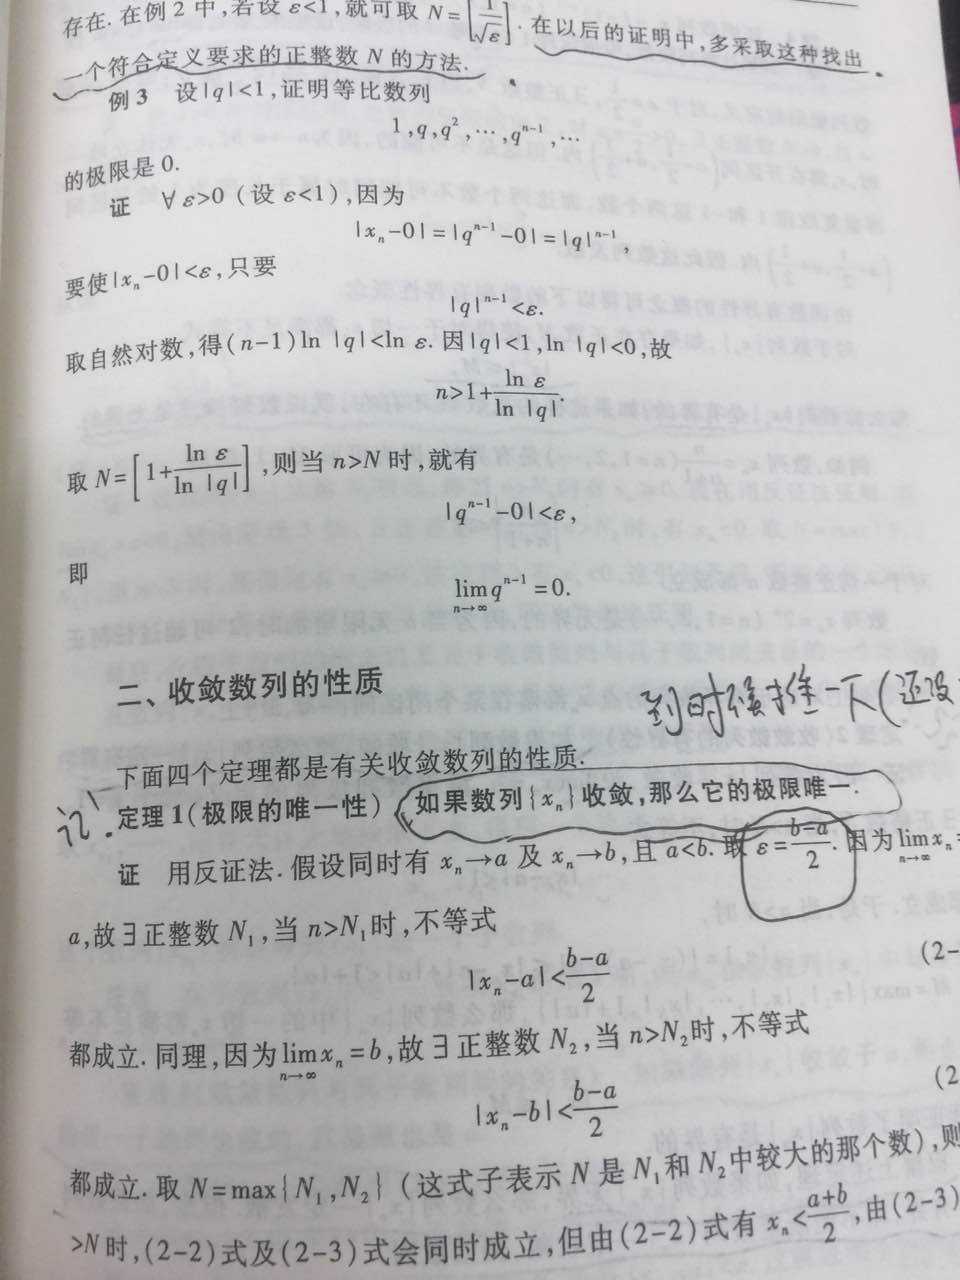 存在. 在例 2 中,若设 ε<1,就可取 N=[1/√ε]. 在以后的证明中,多采取这种找出
一个符合定义要求的正整数 N 的方法.
例 3 设|q|<1,证明等比数列
1,q,q²,⋯,qⁿ⁻¹,⋯
的极限是 0.
证 ∀ε>0 (设 ε<1),因为
|xₙ-0|=|qⁿ⁻¹-0|=|q|ⁿ⁻¹,
要使|xₙ-0|<ε,只要
|q|ⁿ⁻¹<ε.
取自然对数,得(n-1)ln |q|<ln ε. 因|q|<1,ln |q|<0,故
n>1+ln ε/ln |q|.
取 N=[1+ln ε/ln |q|],则当 n>N 时,就有
|qⁿ⁻¹-0|<ε,
即
lim qⁿ⁻¹=0.
n→∞
二、收敛数列的性质
到时候推一下(还没
下面四个定理都是有关收敛数列的性质.
记.
定理 1(极限的唯一性) 如果数列{xₙ}收敛,那么它的极限唯一.
证 用反证法. 假设同时有 xₙ→a 及 xₙ→b,且 a<b. 取 ε=(b-a)/2. 因为 lim xₙ=
n→∞
a,故∃正整数 N₁,当 n>N₁时,不等式
|xₙ-a|<(b-a)/2 (2-
都成立. 同理,因为 lim xₙ=b,故∃正整数 N₂,当 n>N₂时,不等式
n→∞
|xₙ-b|<(b-a)/2 (2
都成立. 取 N=max{N₁,N₂}(这式子表示 N 是 N₁和 N₂中较大的那个数),则
>N 时,(2-2)式及(2-3)式会同时成立,但由(2-2)式有 xₙ<(a+b)/2,由(2-3)